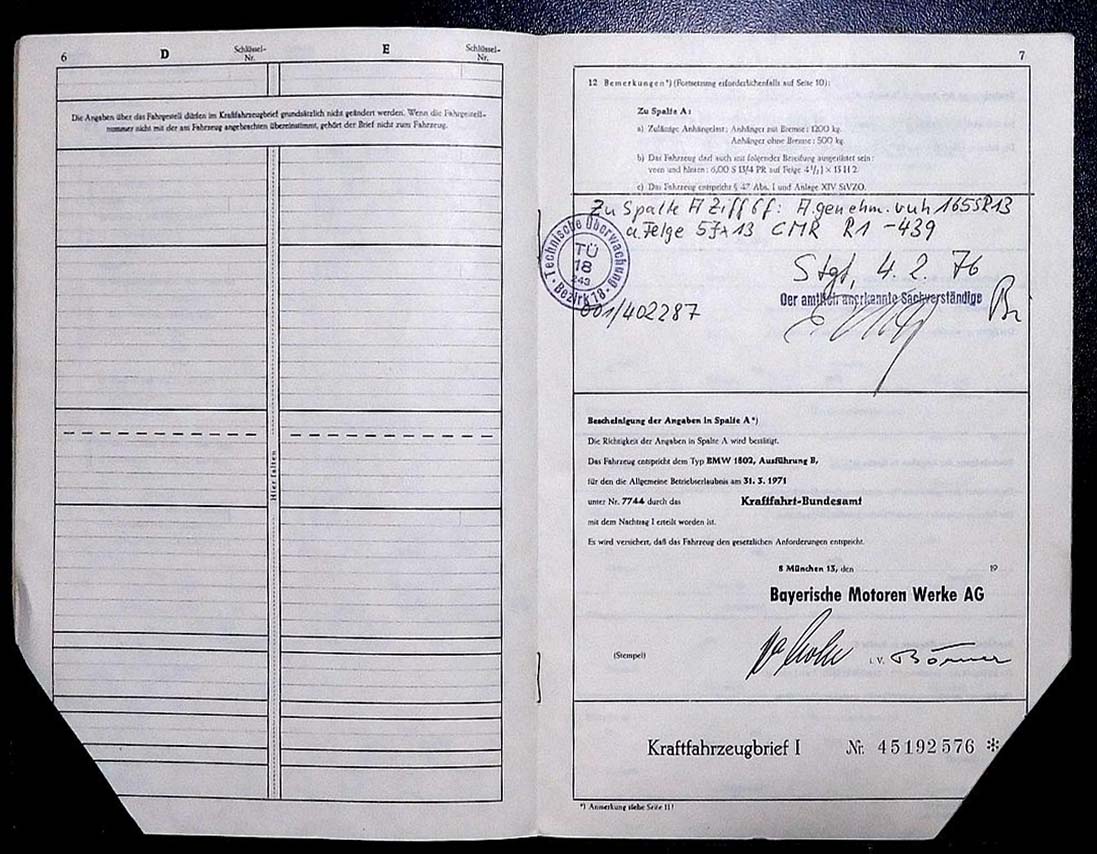 6
D
Schlüssel-
Nr.
E
Schlüssel-
Nr.
Die Angaben über das Fahrgestell dürfen im Kraftfahrzeugbrief grundsätzlich nicht geändert werden. Wenn die Fahrgestell-
nummer nicht mit der am Fahrzeug angebrachten übereinstimmt, gehört der Brief nicht zum Fahrzeug.
Hier falten
7
12 Bemerkungen*) (Fortsetzung erforderlichenfalls auf Seite 10):
Zu Spalte A:
a) Zulässige Anhängelast: Anhänger mit Bremse: 1200 kg
Anhänger ohne Bremse: 500 kg
b) Das Fahrzeug darf auch mit folgender Bereifung ausgerüstet sein:
vorn und hinten: 6,00 S 13/4 PR auf Felge 4½ J × 13 H 2.
c) Das Fahrzeug entspricht § 47 Abs. 1 und Anlage XIV StVZO.
Zu Spalte A Ziff 6f: A. genehm. vuh 165SR13
a. Felge 5J x 13 CMR R1 -439
Stgt, 4. 2. 76
Technische Überwachung
TÜ
18
243
Bezirk 18
Der amtlich anerkannte Sachverständige
001/402287
Bescheinigung der Angaben in Spalte A*)
Die Richtigkeit der Angaben in Spalte A wird bestätigt.
Das Fahrzeug entspricht dem Typ BMW 1802, Ausführung B,
für den die Allgemeine Betriebserlaubnis am 31. 3. 1971
unter Nr. 7744 durch das Kraftfahrt-Bundesamt
mit dem Nachtrag I erteilt worden ist.
Es wird versichert, daß das Fahrzeug den gesetzlichen Anforderungen entspricht.
8 München 13, den 19
Bayerische Motoren Werke AG
(Stempel)
i. V. Börner
Kraftfahrzeugbrief I Nr. 45192576 *
*) Anmerkung siehe Seite 11!